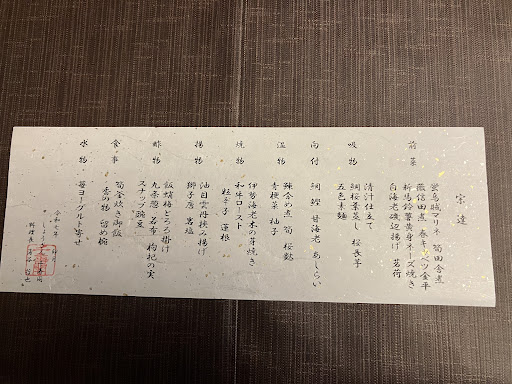 前菜
蛍烏賊マリネ 筍田舎煮
蕨信田煮 春キャベツ金平
新馬鈴薯黄身チーズ焼き
白海老磯辺揚げ 茗荷
吸物
清汁仕立て
鯛桜葉蒸し 桜長芋
五色麺
向付
鯛 鰹 甘海老 あしらい
温物
強含め煮 筍 桜麩
青梗菜 柚子
焼物
伊勢海老木の芽焼き
和牛ロースト
粒辛子 蓮根
揚物
油目雲丹挟み揚げ
獅子唐 藻塩
酢物
飯蛸梅とろろ掛け
九条葱 若布 枸杞の実
スナップ豌豆
食事
筍釜炊き御飯
香の物 留め椀
水物
苺ヨーグルト寄せ
令和七年
料理長